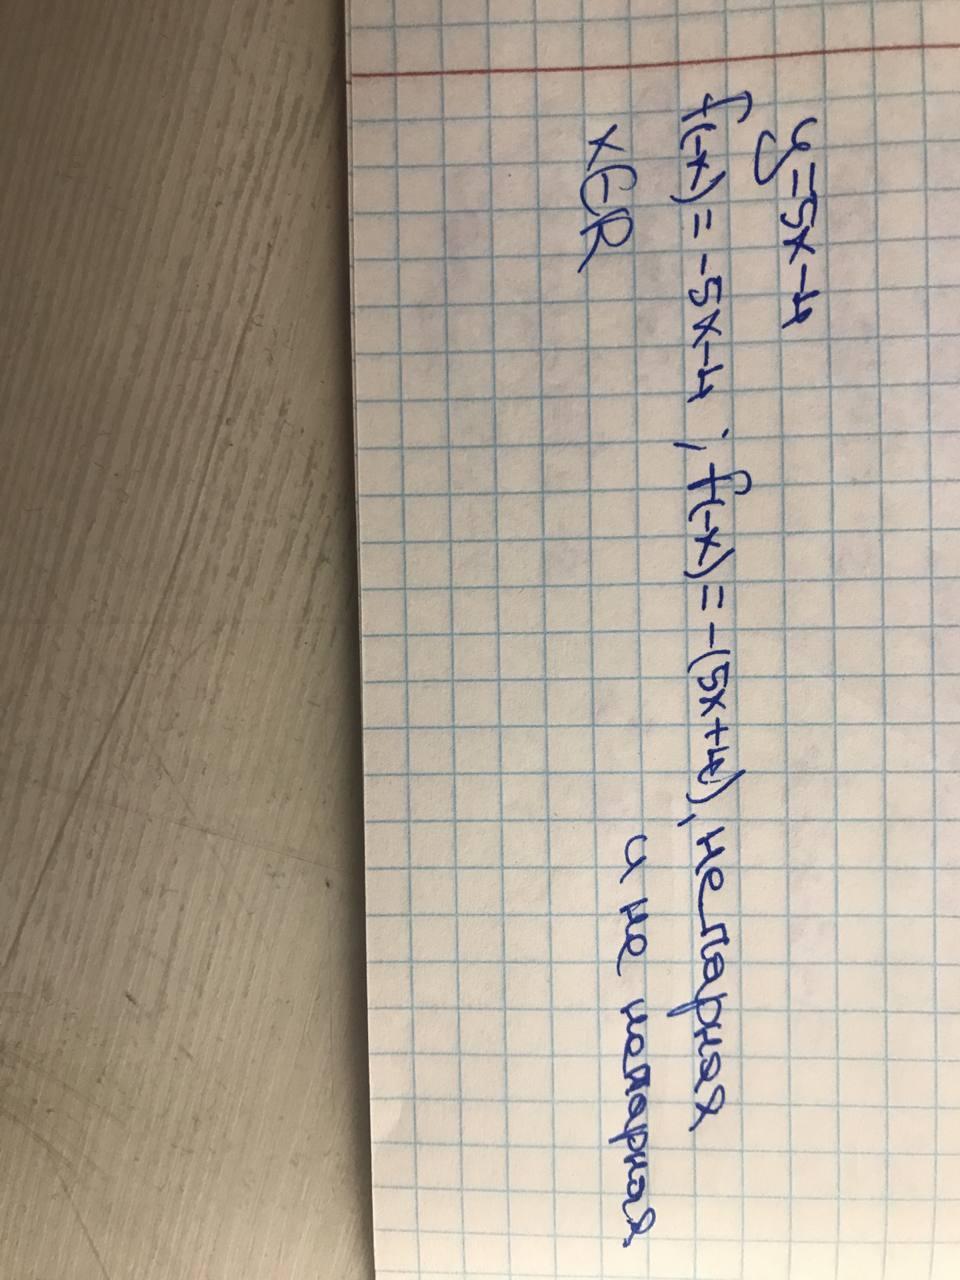 y=5x-4
f(-x) = -5x-4 ; f(-x) = -(5x+4), не парная
и не непарная.
x∈R